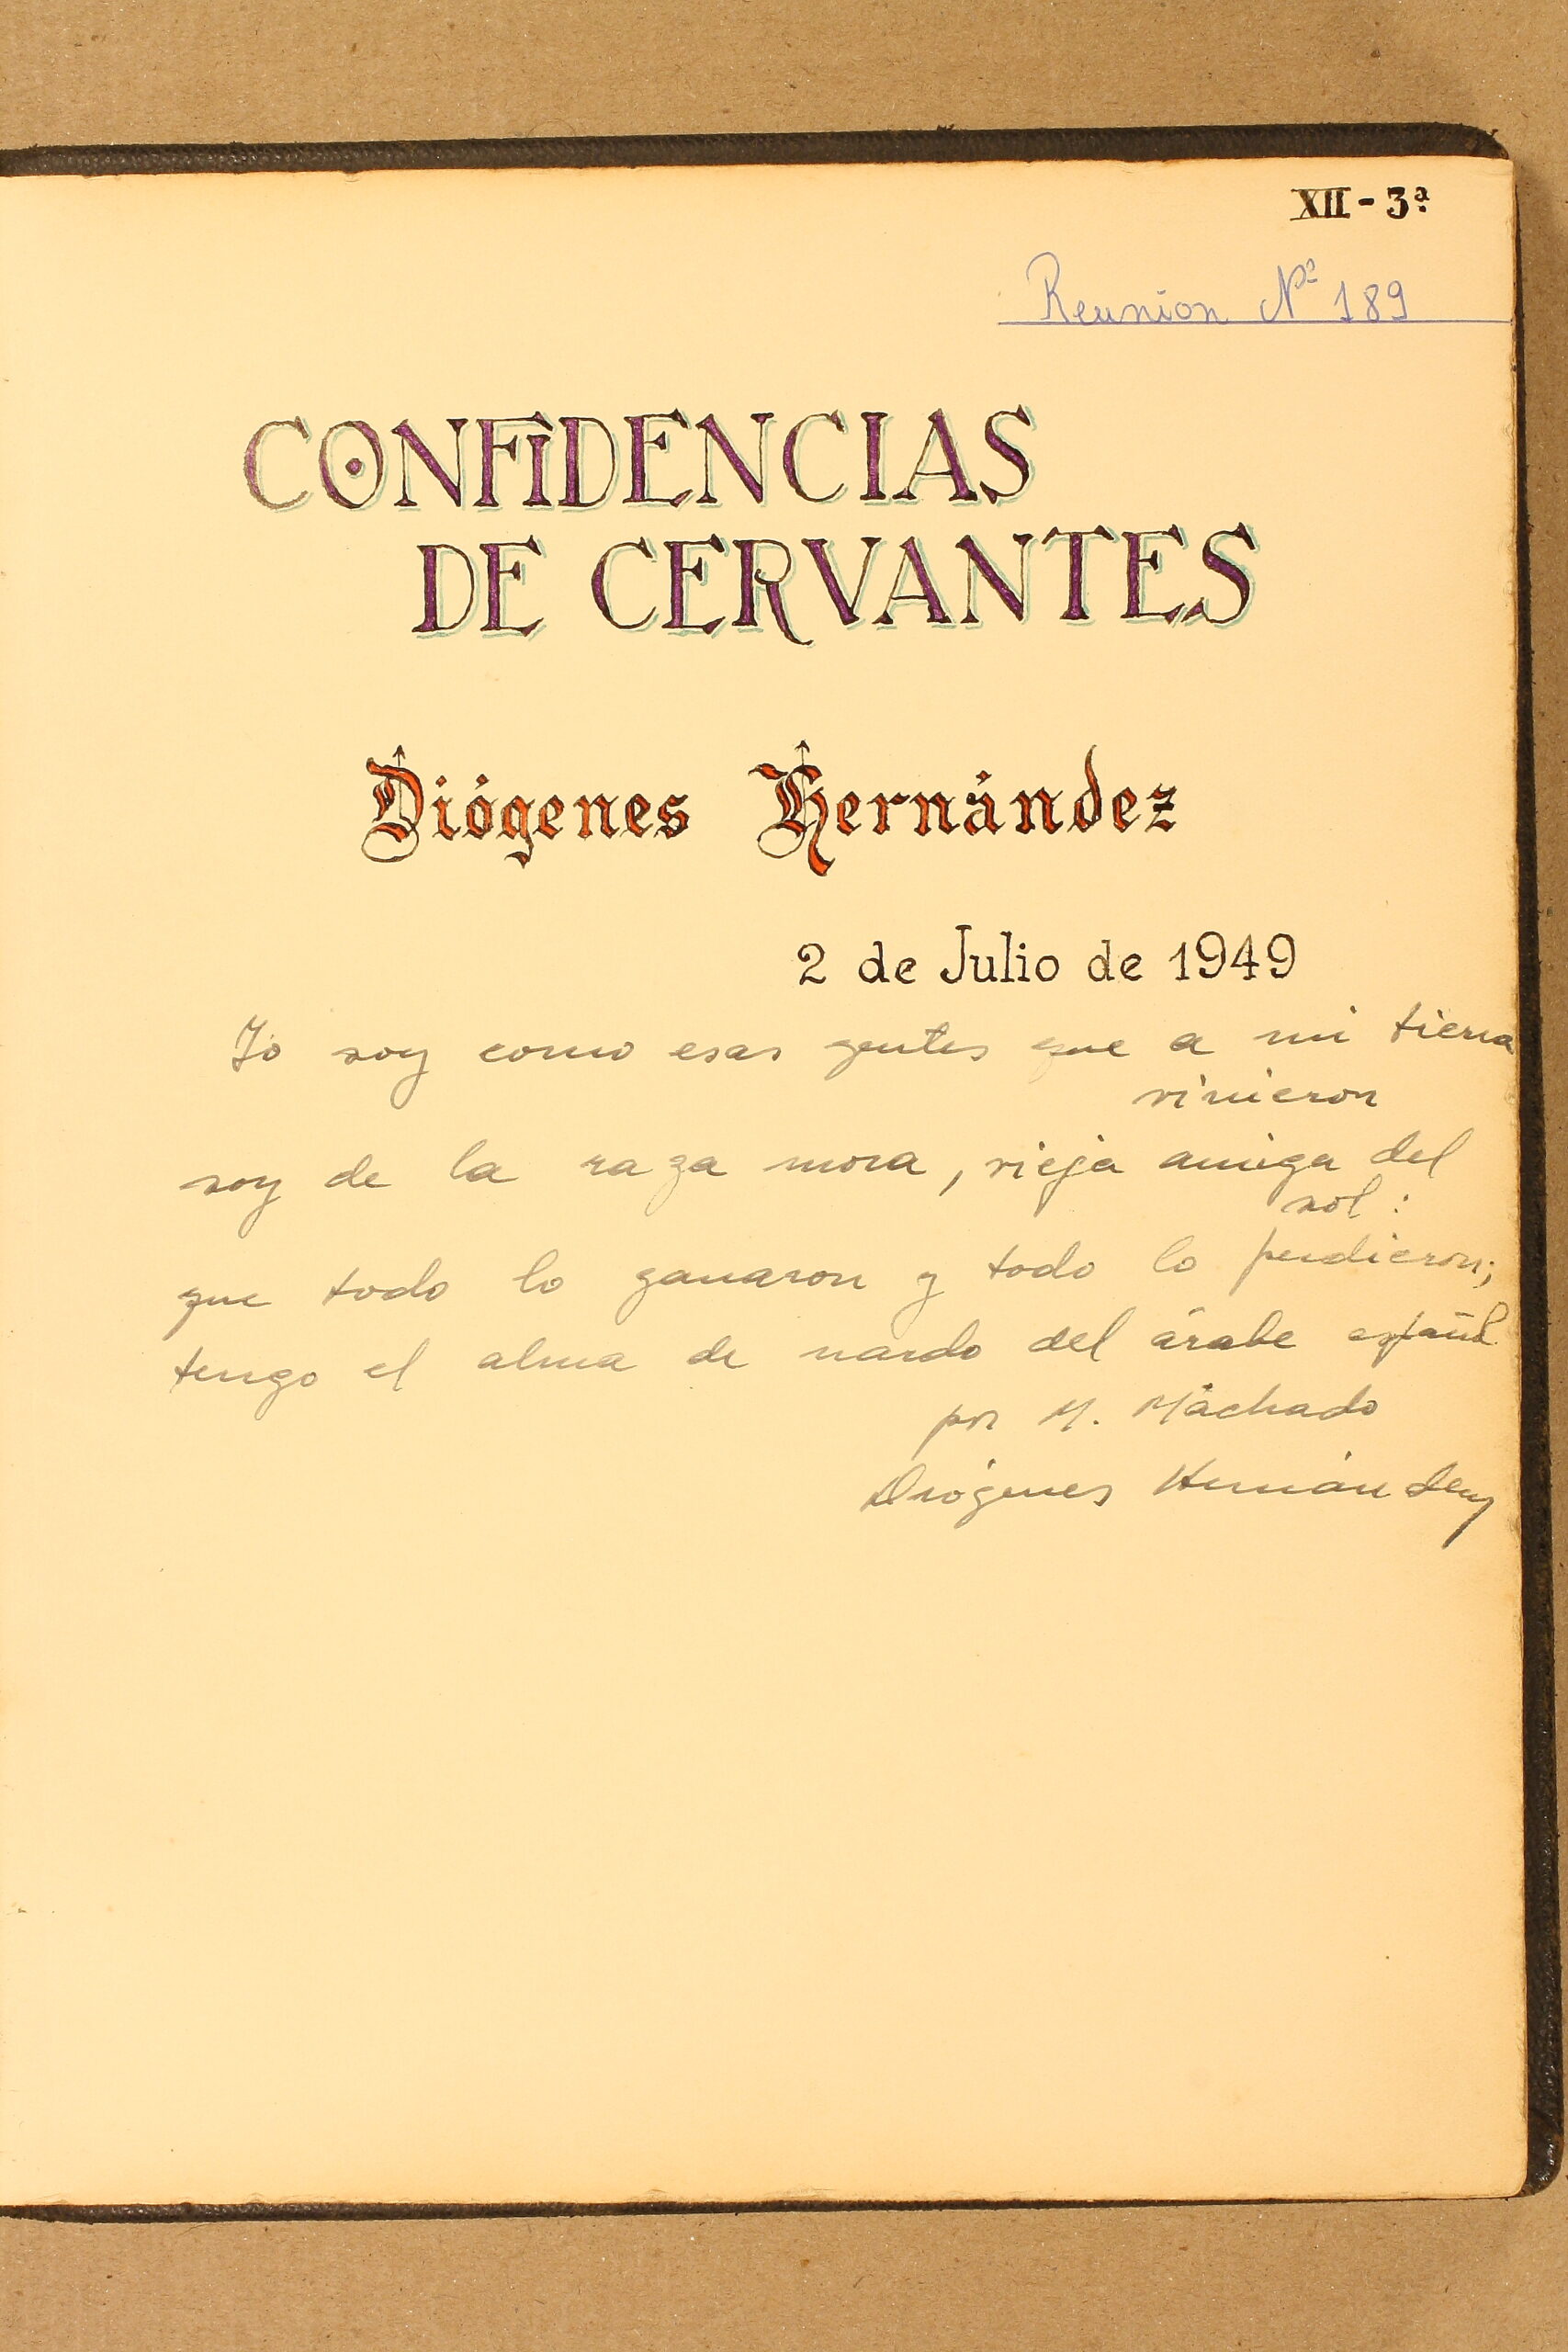 XII - 3ª
Reunion Nº 189
CONFIDENCIAS
DE CERVANTES
Diógenes Hernández
2 de Julio de 1949
Yo soy como esas gentes que a mi tierra
vinieron
soy de la raza mora, vieja amiga del
sol:
que todo lo ganaron y todo lo perdieron;
tengo el alma de nardo del árabe español.
por M. Machado
Diógenes Hernández